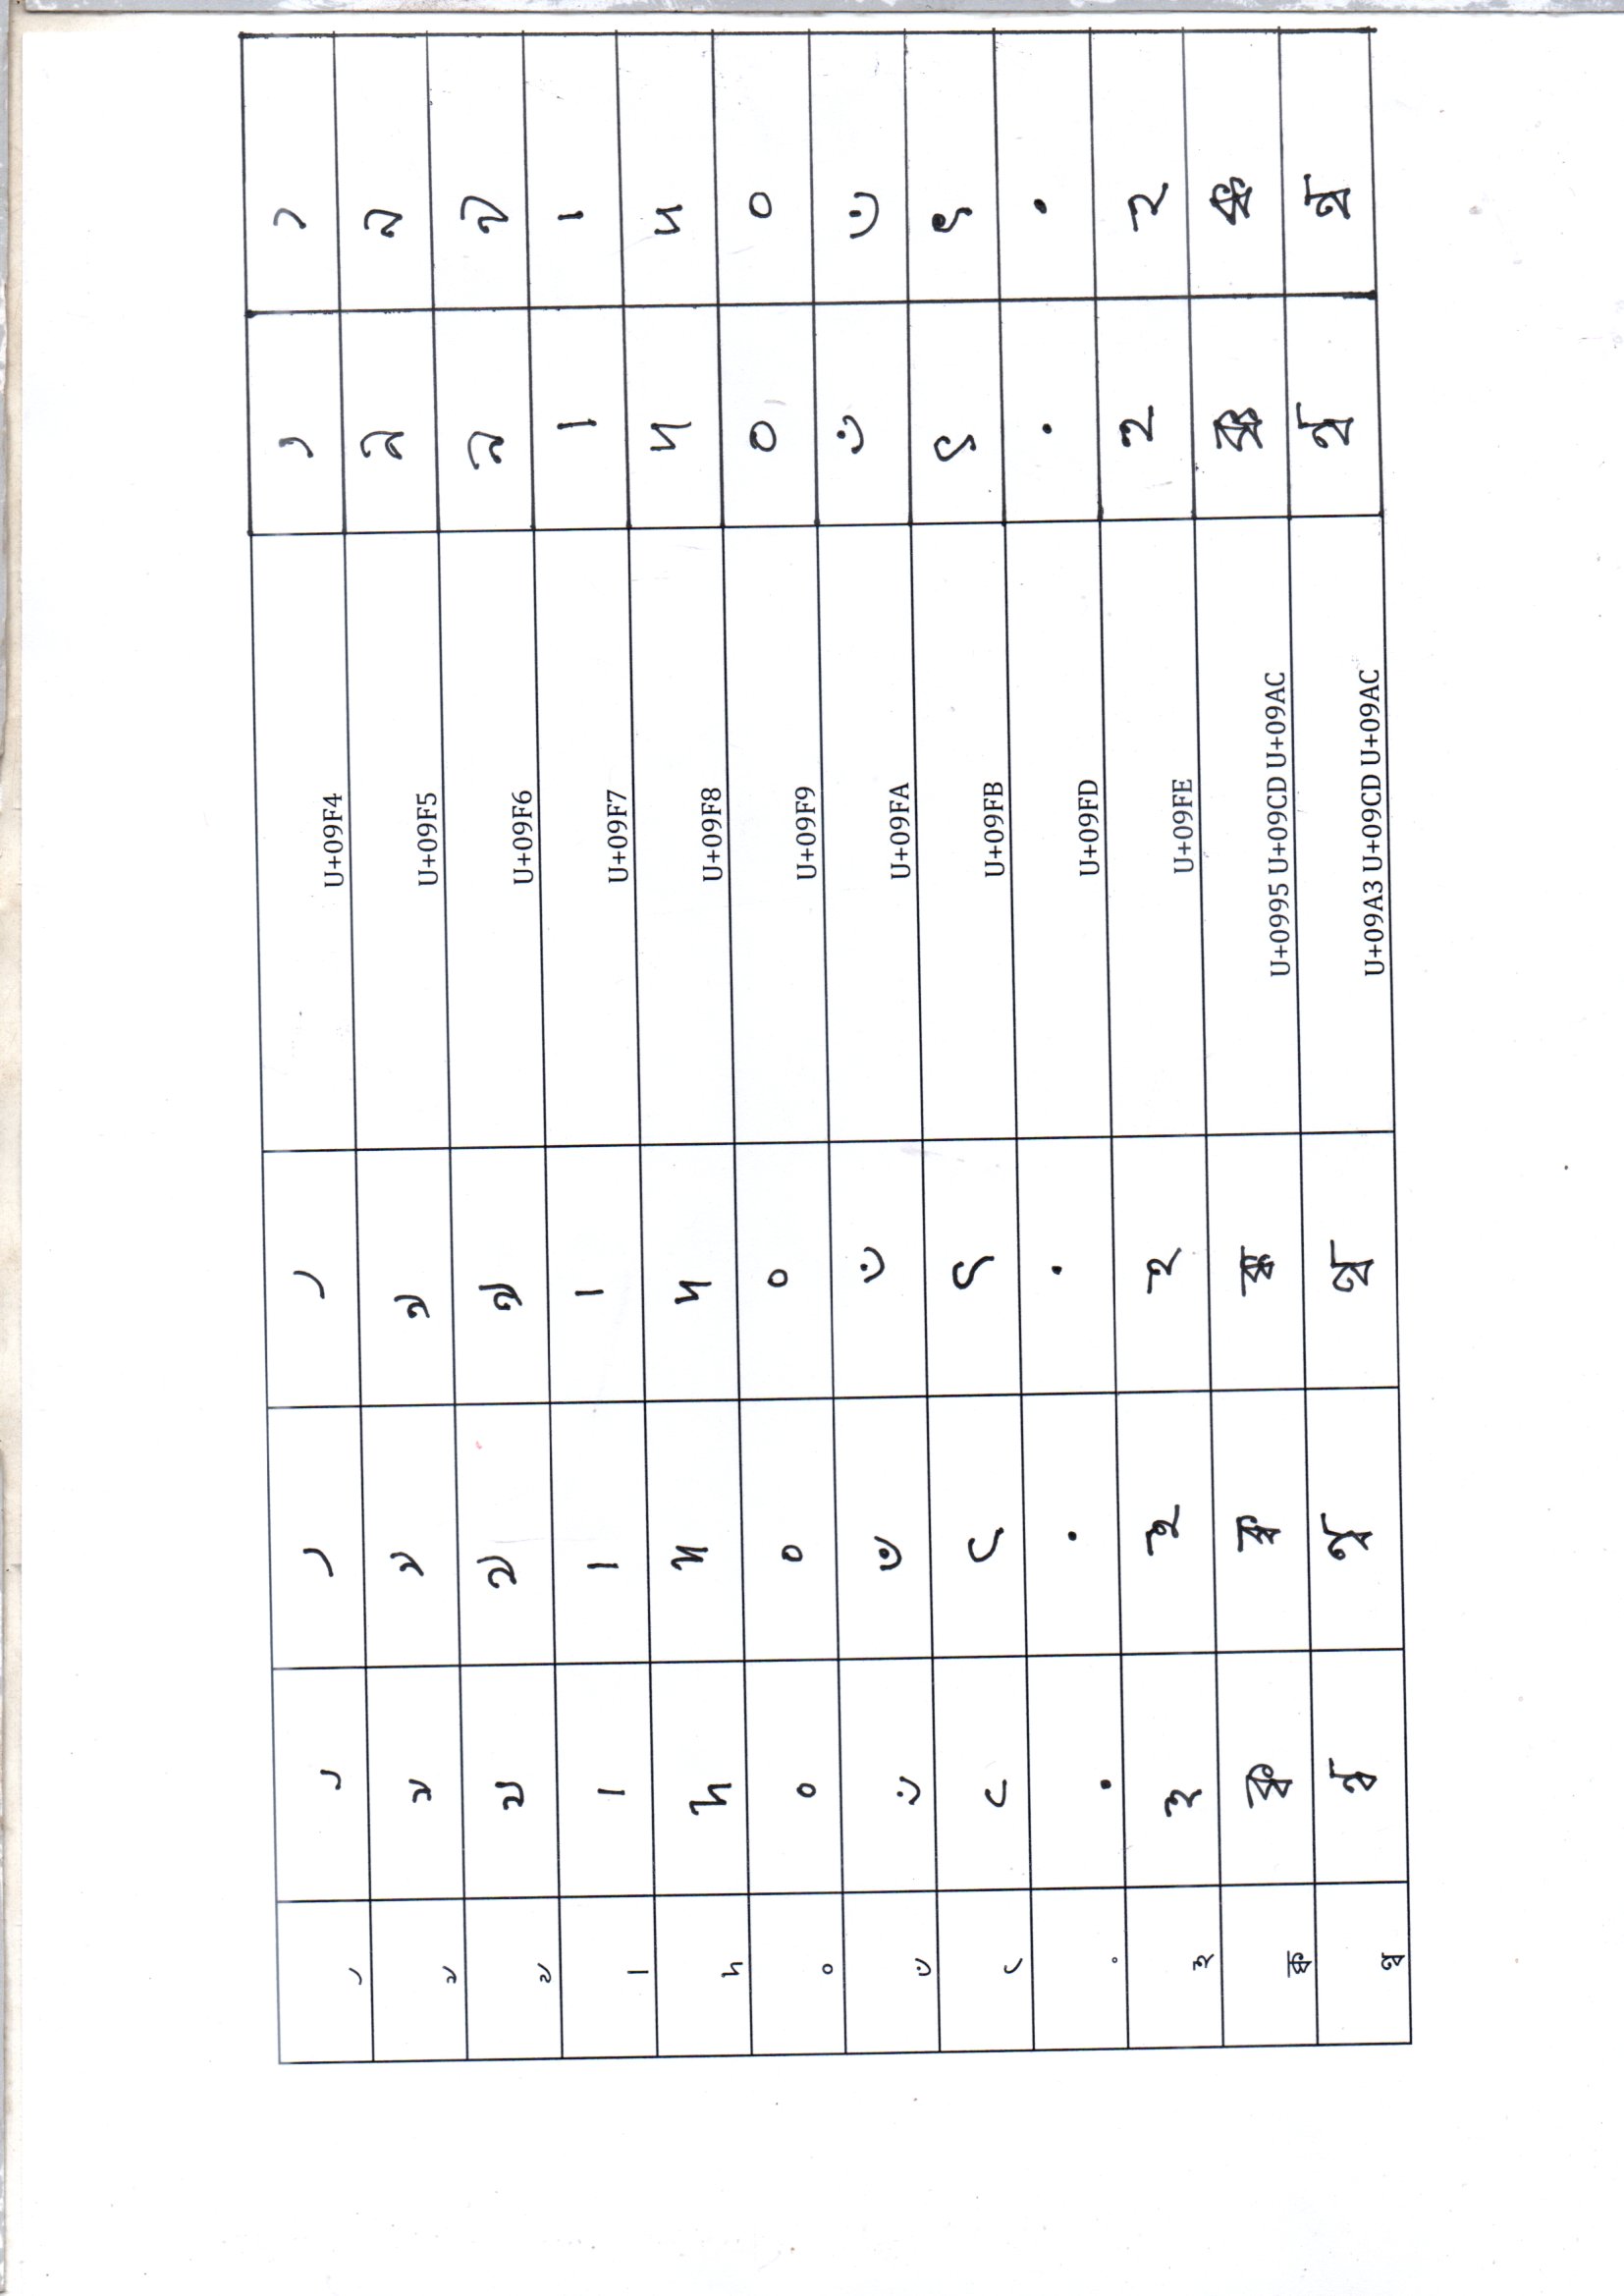 ৴ ৴ ৴ ৴ U+09F4 ৴ ৴
৵ ৵ ৵ ৵ U+09F5 ৵ ৵
৶ ৶ ৶ ৶ U+09F6 ৶ ৶
৷ ৷ ৷ ৷ U+09F7 ৷ ৷
৸ ৸ ৸ ৸ U+09F8 ৸ ৸
৹ ৹ ৹ ৹ U+09F9 ৹ ৹
৺ ৺ ৺ ৺ U+09FA ৺ ৺
৻ ৻ ৻ ৻ U+09FB ৻ ৻
৽ ৽ ৽ ৽ U+09FD ৽ ৽
৾ ৾ ৾ ৾ U+09FE ৾ ৾
ক্ব ক্ব ক্ব ক্ব U+0995 U+09CD U+09AC ক্ব ক্ব
ণ্ব ণ্ব ণ্ব ণ্ব U+09A3 U+09CD U+09AC ণ্ব ণ্ব